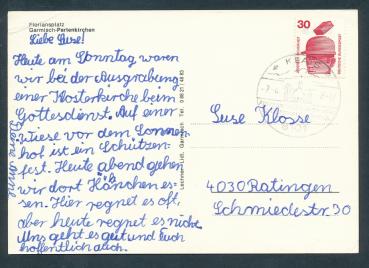 Floriansplatz
Garmisch-Partenkirchen
Liebe Suse!
Heute am Sonntag waren
wir bei der Ausgrabung
einer Klosterkirche beim
Gottesdienst. Auf einer
Wiese vor dem Sonnen-
hof ist ein Schützen-
fest. Heute abend gehen
wir dort Hänchen es-
sen. Hier regnet es oft,
aber heute regnet es nicht.
Uns geht es gut und Euch
hoffentlich auch.
Deine Anne
30
Suse Klosse
4030 Ratingen
Schmiedestr 30
8101